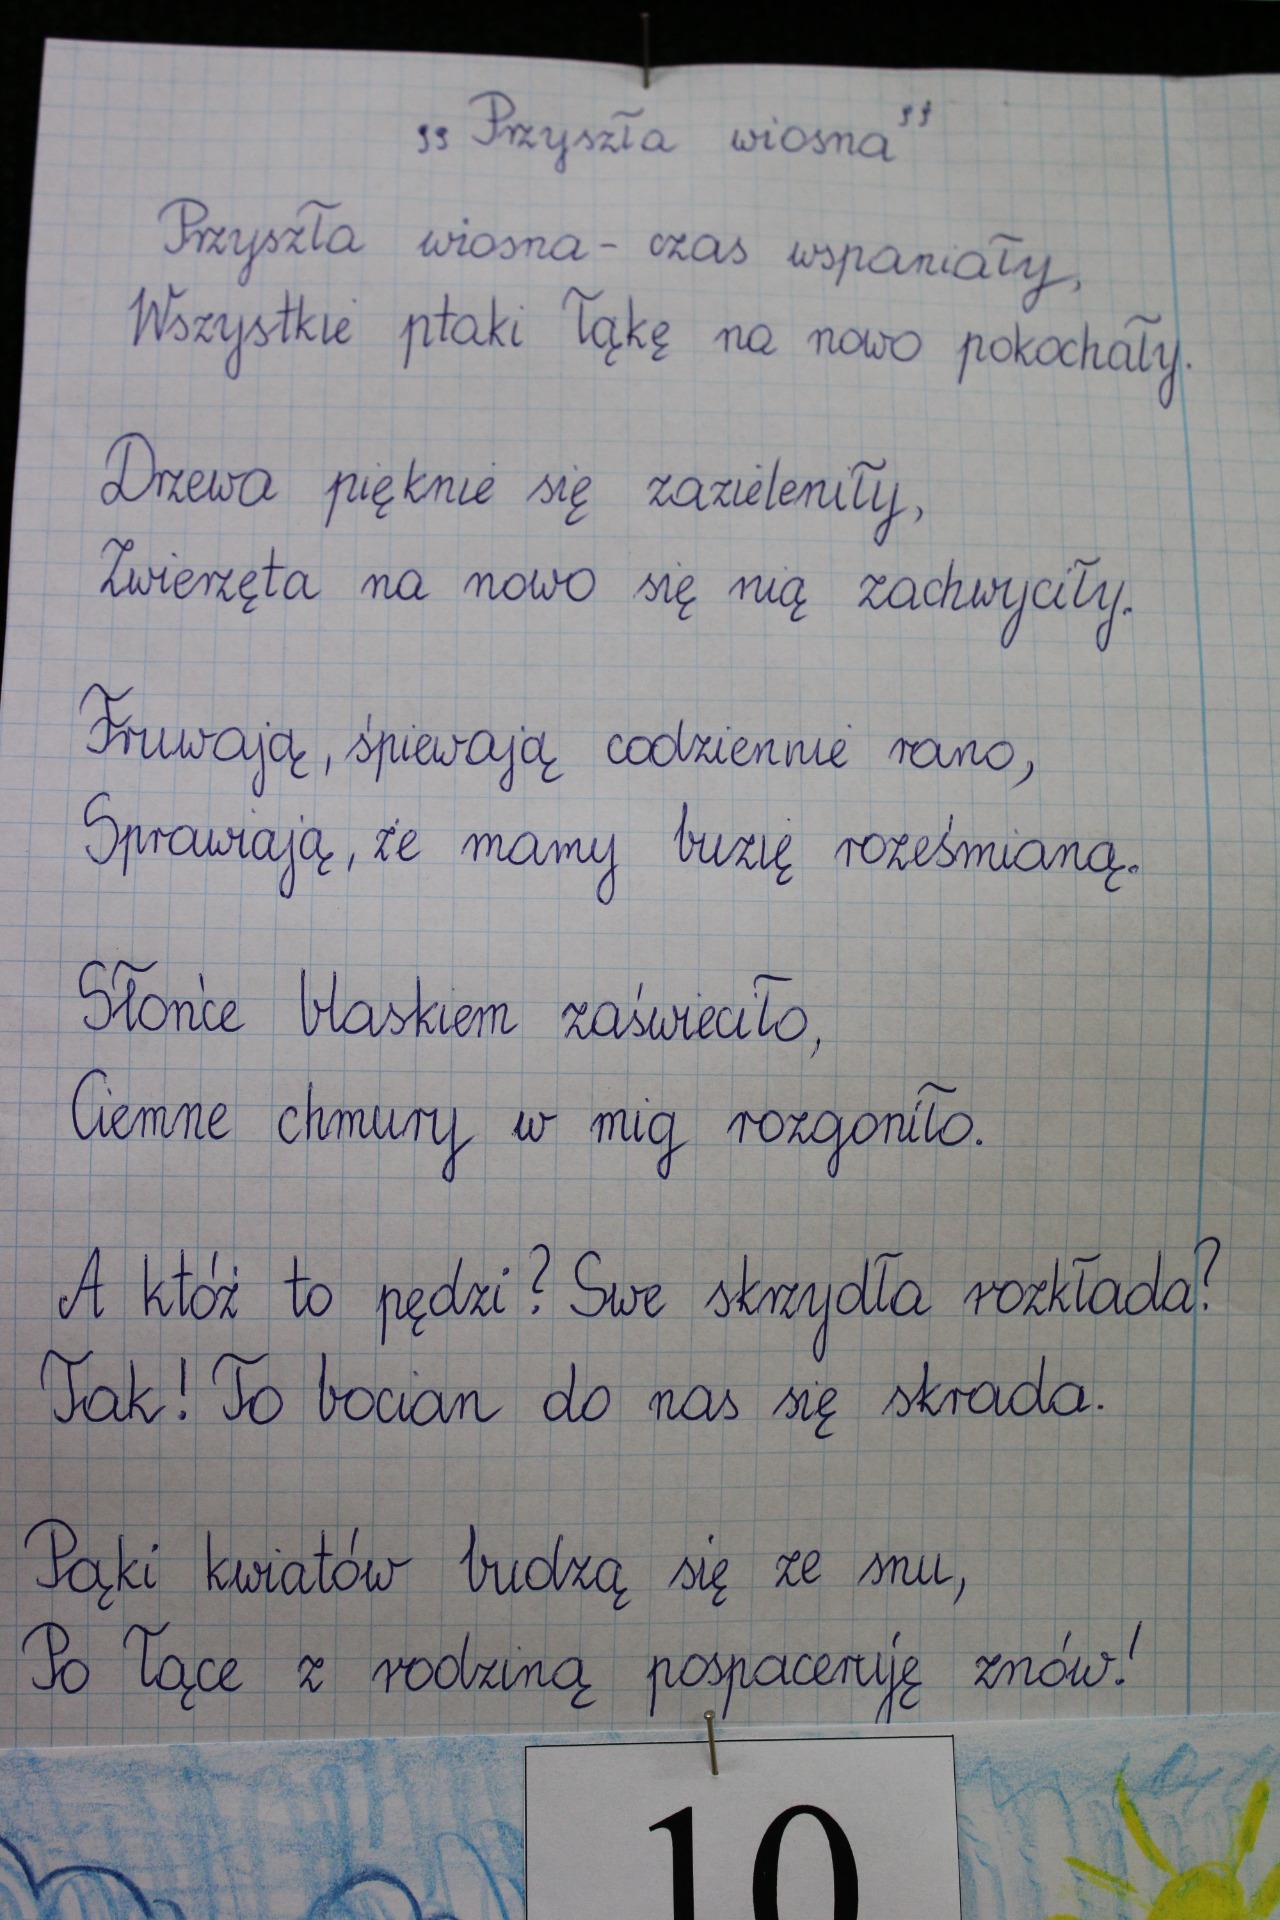 „Przyszła wiosna"
Przyszła wiosna - czas wspaniały,
Wszystkie ptaki łąkę na nowo pokochały.
Drzewa pięknie się zazieleniły,
Zwierzęta na nowo się nią zachwyciły.
Fruwają, śpiewają codziennie rano,
Sprawiają, że mamy buzię roześmianą.
Słońce blaskiem zaświeciło,
Ciemne chmury w mig rozgoniło.
A któż to pędzi? Swe skrzydła rozkłada?
Tak! To bocian do nas się skrada.
Pąki kwiatów budzą się ze snu,
Po łące z rodziną pospaceruję znów!
10